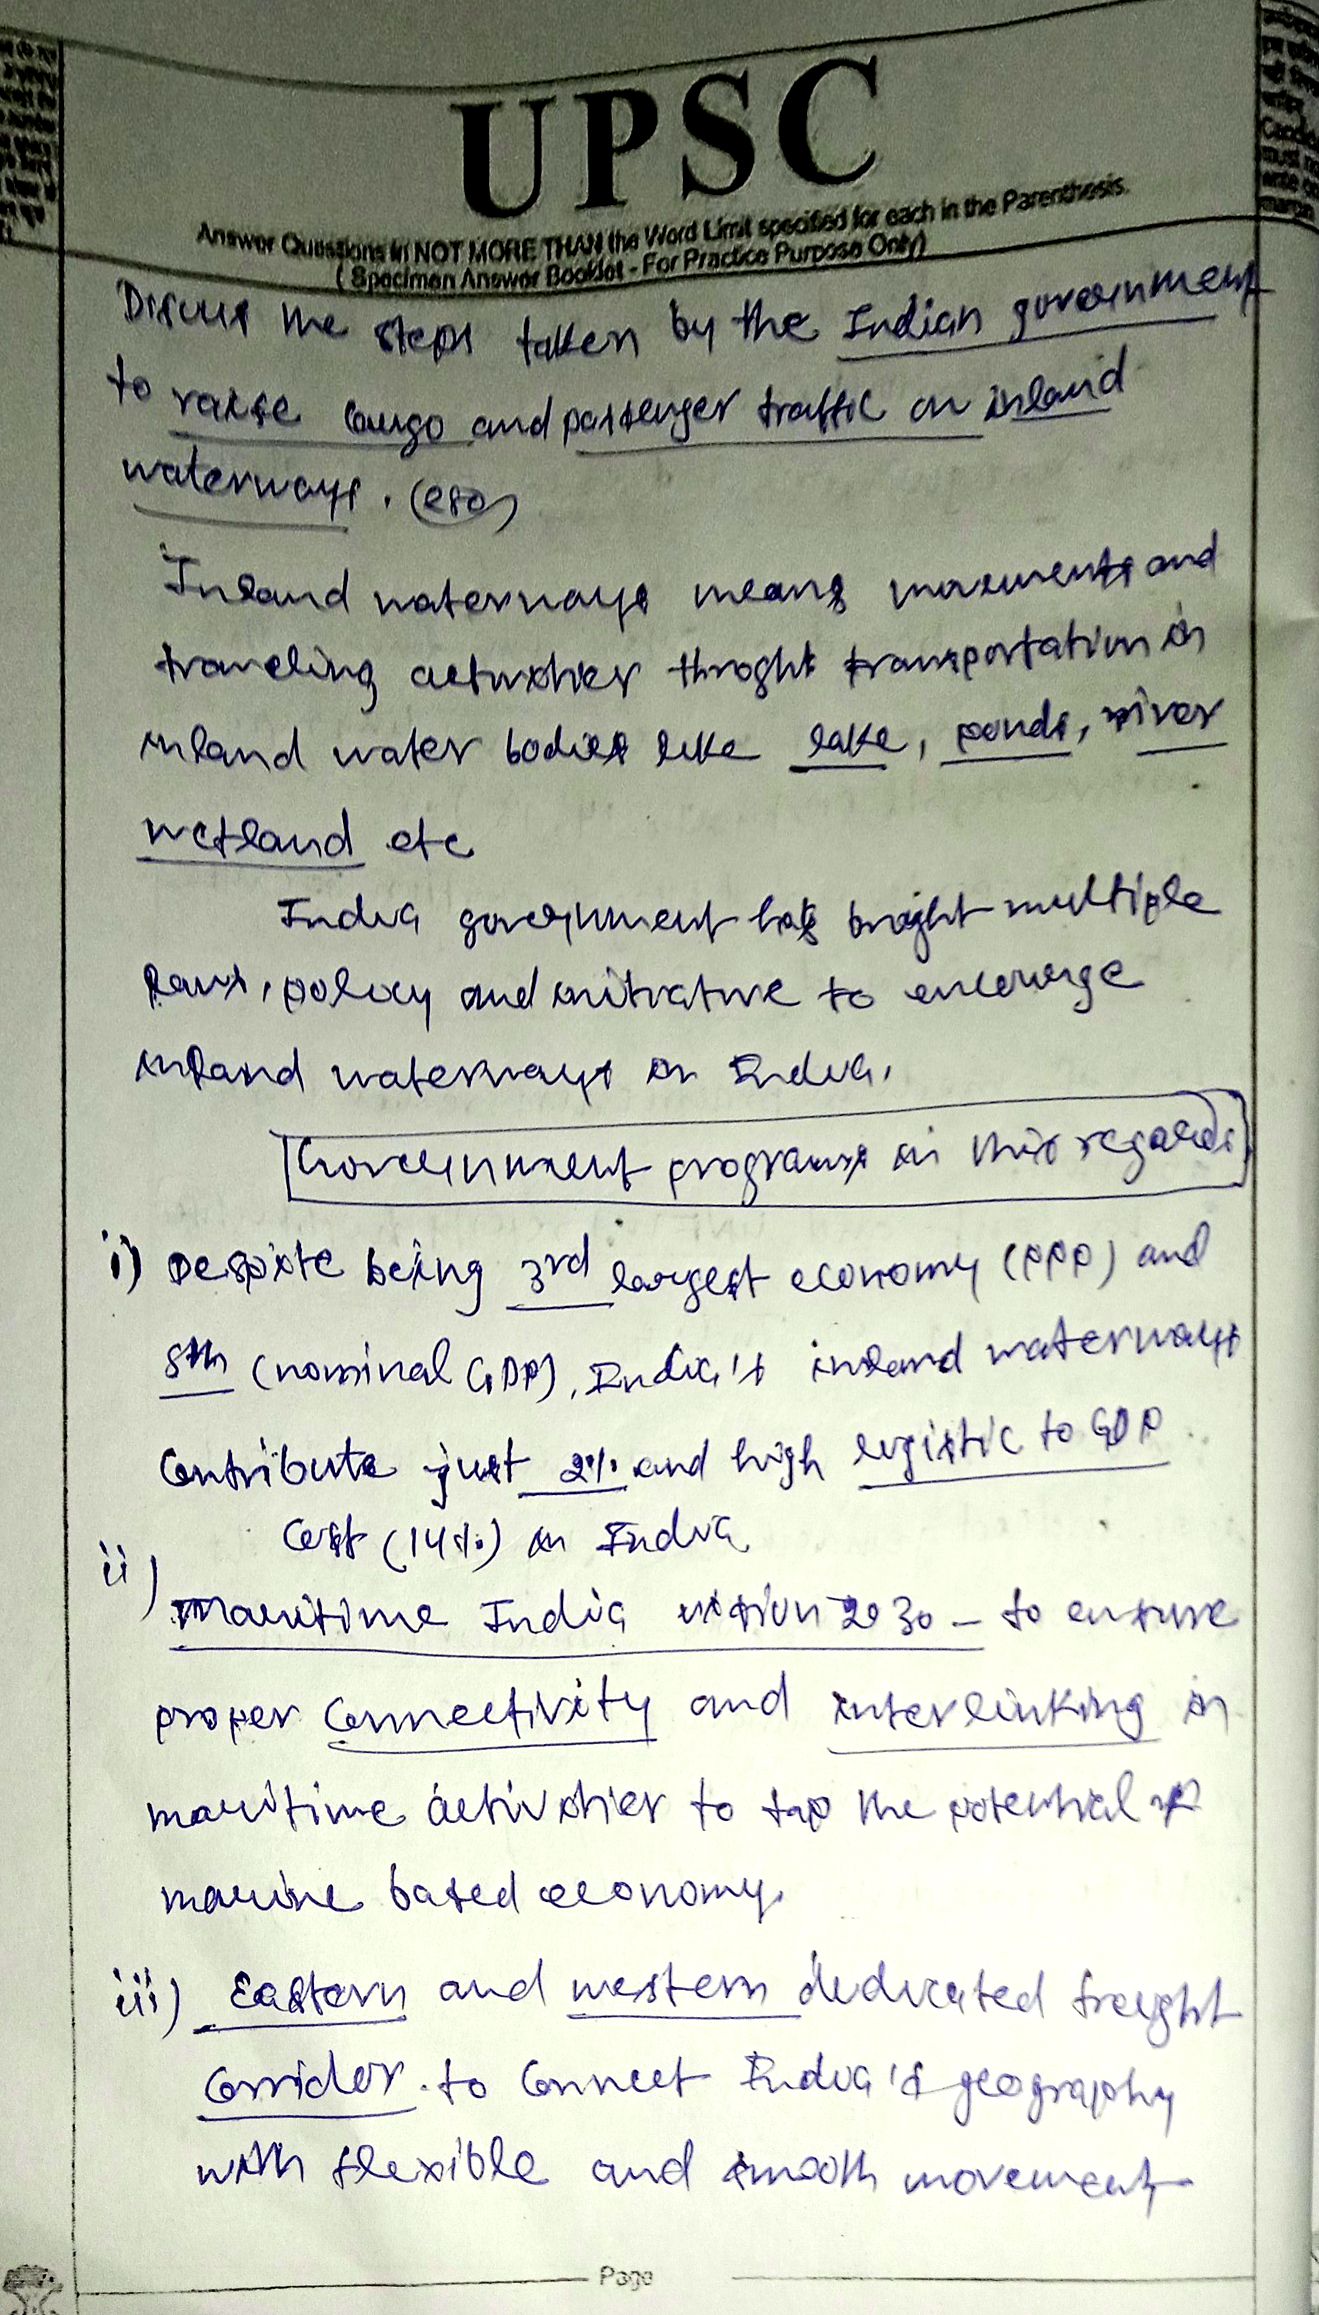 UPSC
Answer Questions in NOT MORE THAN the Word Limit specified for each in the Parenthesis.
( Specimen Answer Booklet - For Practice Purpose Only)
Discuss the steps taken by the Indian government
to raise cargo and passenger traffic on inland
waterways. (250)
Inland waterways means movements and
traveling activities throght transportation in
inland water bodies like lake, ponds, river
wetland etc
India government has bright multiple
laws, policy and initiative to encourge
inland waterways in India.
Government programs in this regards
i) Despite being 3rd largest economy (PPP) and
5th (nominal GDP), India's inland waterways
contribute just 2% and high logistic to GDP
cost (14%) in India
ii) Maritime India vision 2030 - to ensure
proper connectivity and interlinking in
maritime activities to tap the potential of
marine based economy.
iii) Eastern and western dedicated freight
corridor. to connect India's geography
with flexible and smooth movement
Page